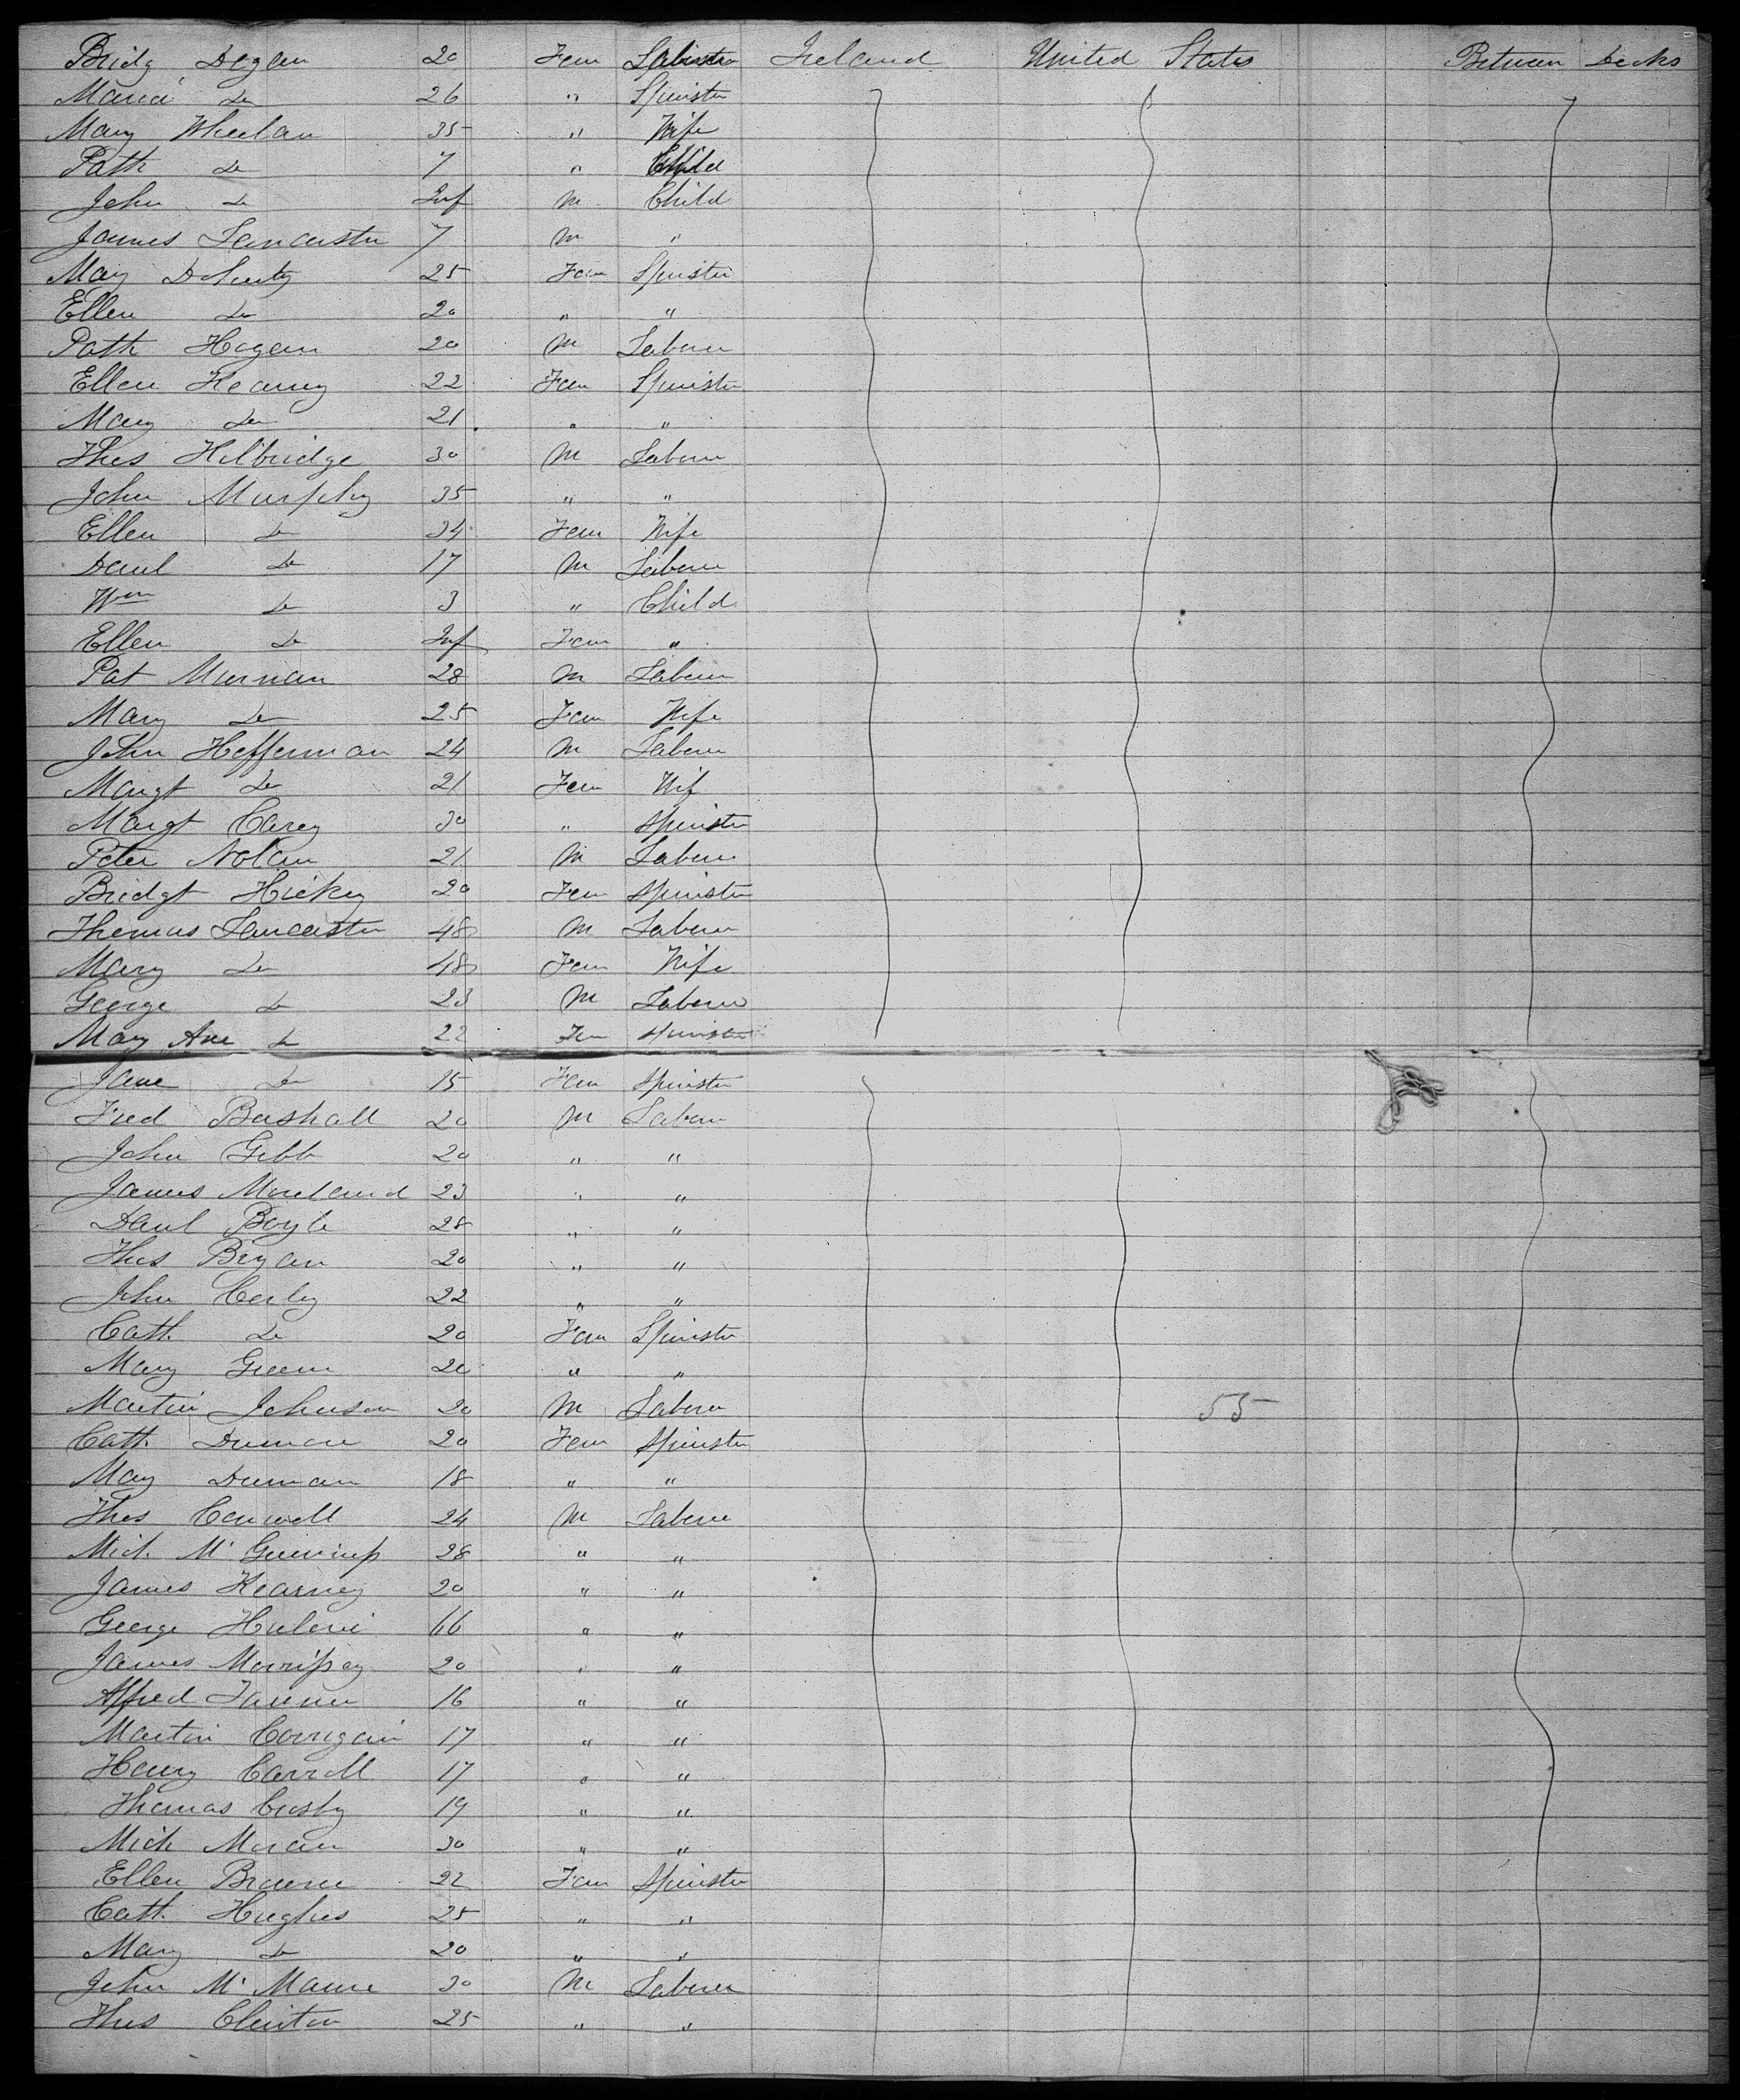 Bridg Degan 20 Fem Ireland United States Between Decks
Maria Do 26 " Spinster
Mary Wheelan 35 " Wife
Patk Do 7 " Child
John Do Inf M Child
James Lancaster 7 M "
Mary Doherty 25 Fem Spinster
Ellen Do 20 " "
Patk Hogan 20 M Laborer
Ellen Kearney 22 Fem Spinster
Mary Do 21 " "
Thos Hilbridge 30 M Laborer
John Murphy 35 " "
Ellen Do 34 Fem Wife
Danl Do 17 M Laborer
Wm Do 3 " Child
Ellen Do Inf Fem "
Pat Murnan 28 M Laborer
Mary Do 25 Fem Wife
John Heffernan 24 M Laborer
Margt Do 21 Fem Wif
Margt Carey 30 " Spinster
Peter Nolan 21 M Laborer
Bridgt Hickey 20 Fem Spinster
Thomas Lancaster 48 M Laborer
Mary Do 48 Fem Wife
George Do 23 M Laborer
Mary Ane Do 22 Fem Spinster
Jane Do 15 Fem Spinster
Fred Bashall 20 M Laborer
John Gibb 20 " "
James Moreland 23 " "
Danl Boyle 28 " "
Thos Bryan 20 " "
John Corley 22 " "
Cath. Do 20 Fem Spinster
Mary Green 20 " "
Martin Johnson 20 M Laborer 55
Cath. 20 Fem Spinster
Mary Dunnan 18 " "
Thos Conwell 24 M Laborer
Mich. 28 " "
James Kearney 20 " "
George 16 " "
James Morrissey 20 " "
Alfred 16 " "
Martin Corrigan 17 " "
Henry Carroll 17 " "
Thomas Crosby 19 " "
Mich Moran 30 " "
Ellen Browne 22 Fem Spinster
Cath. Hughes 25 " "
Mary Do 20 " "
John 30 M Laborer
Thos Clinton 25 " "